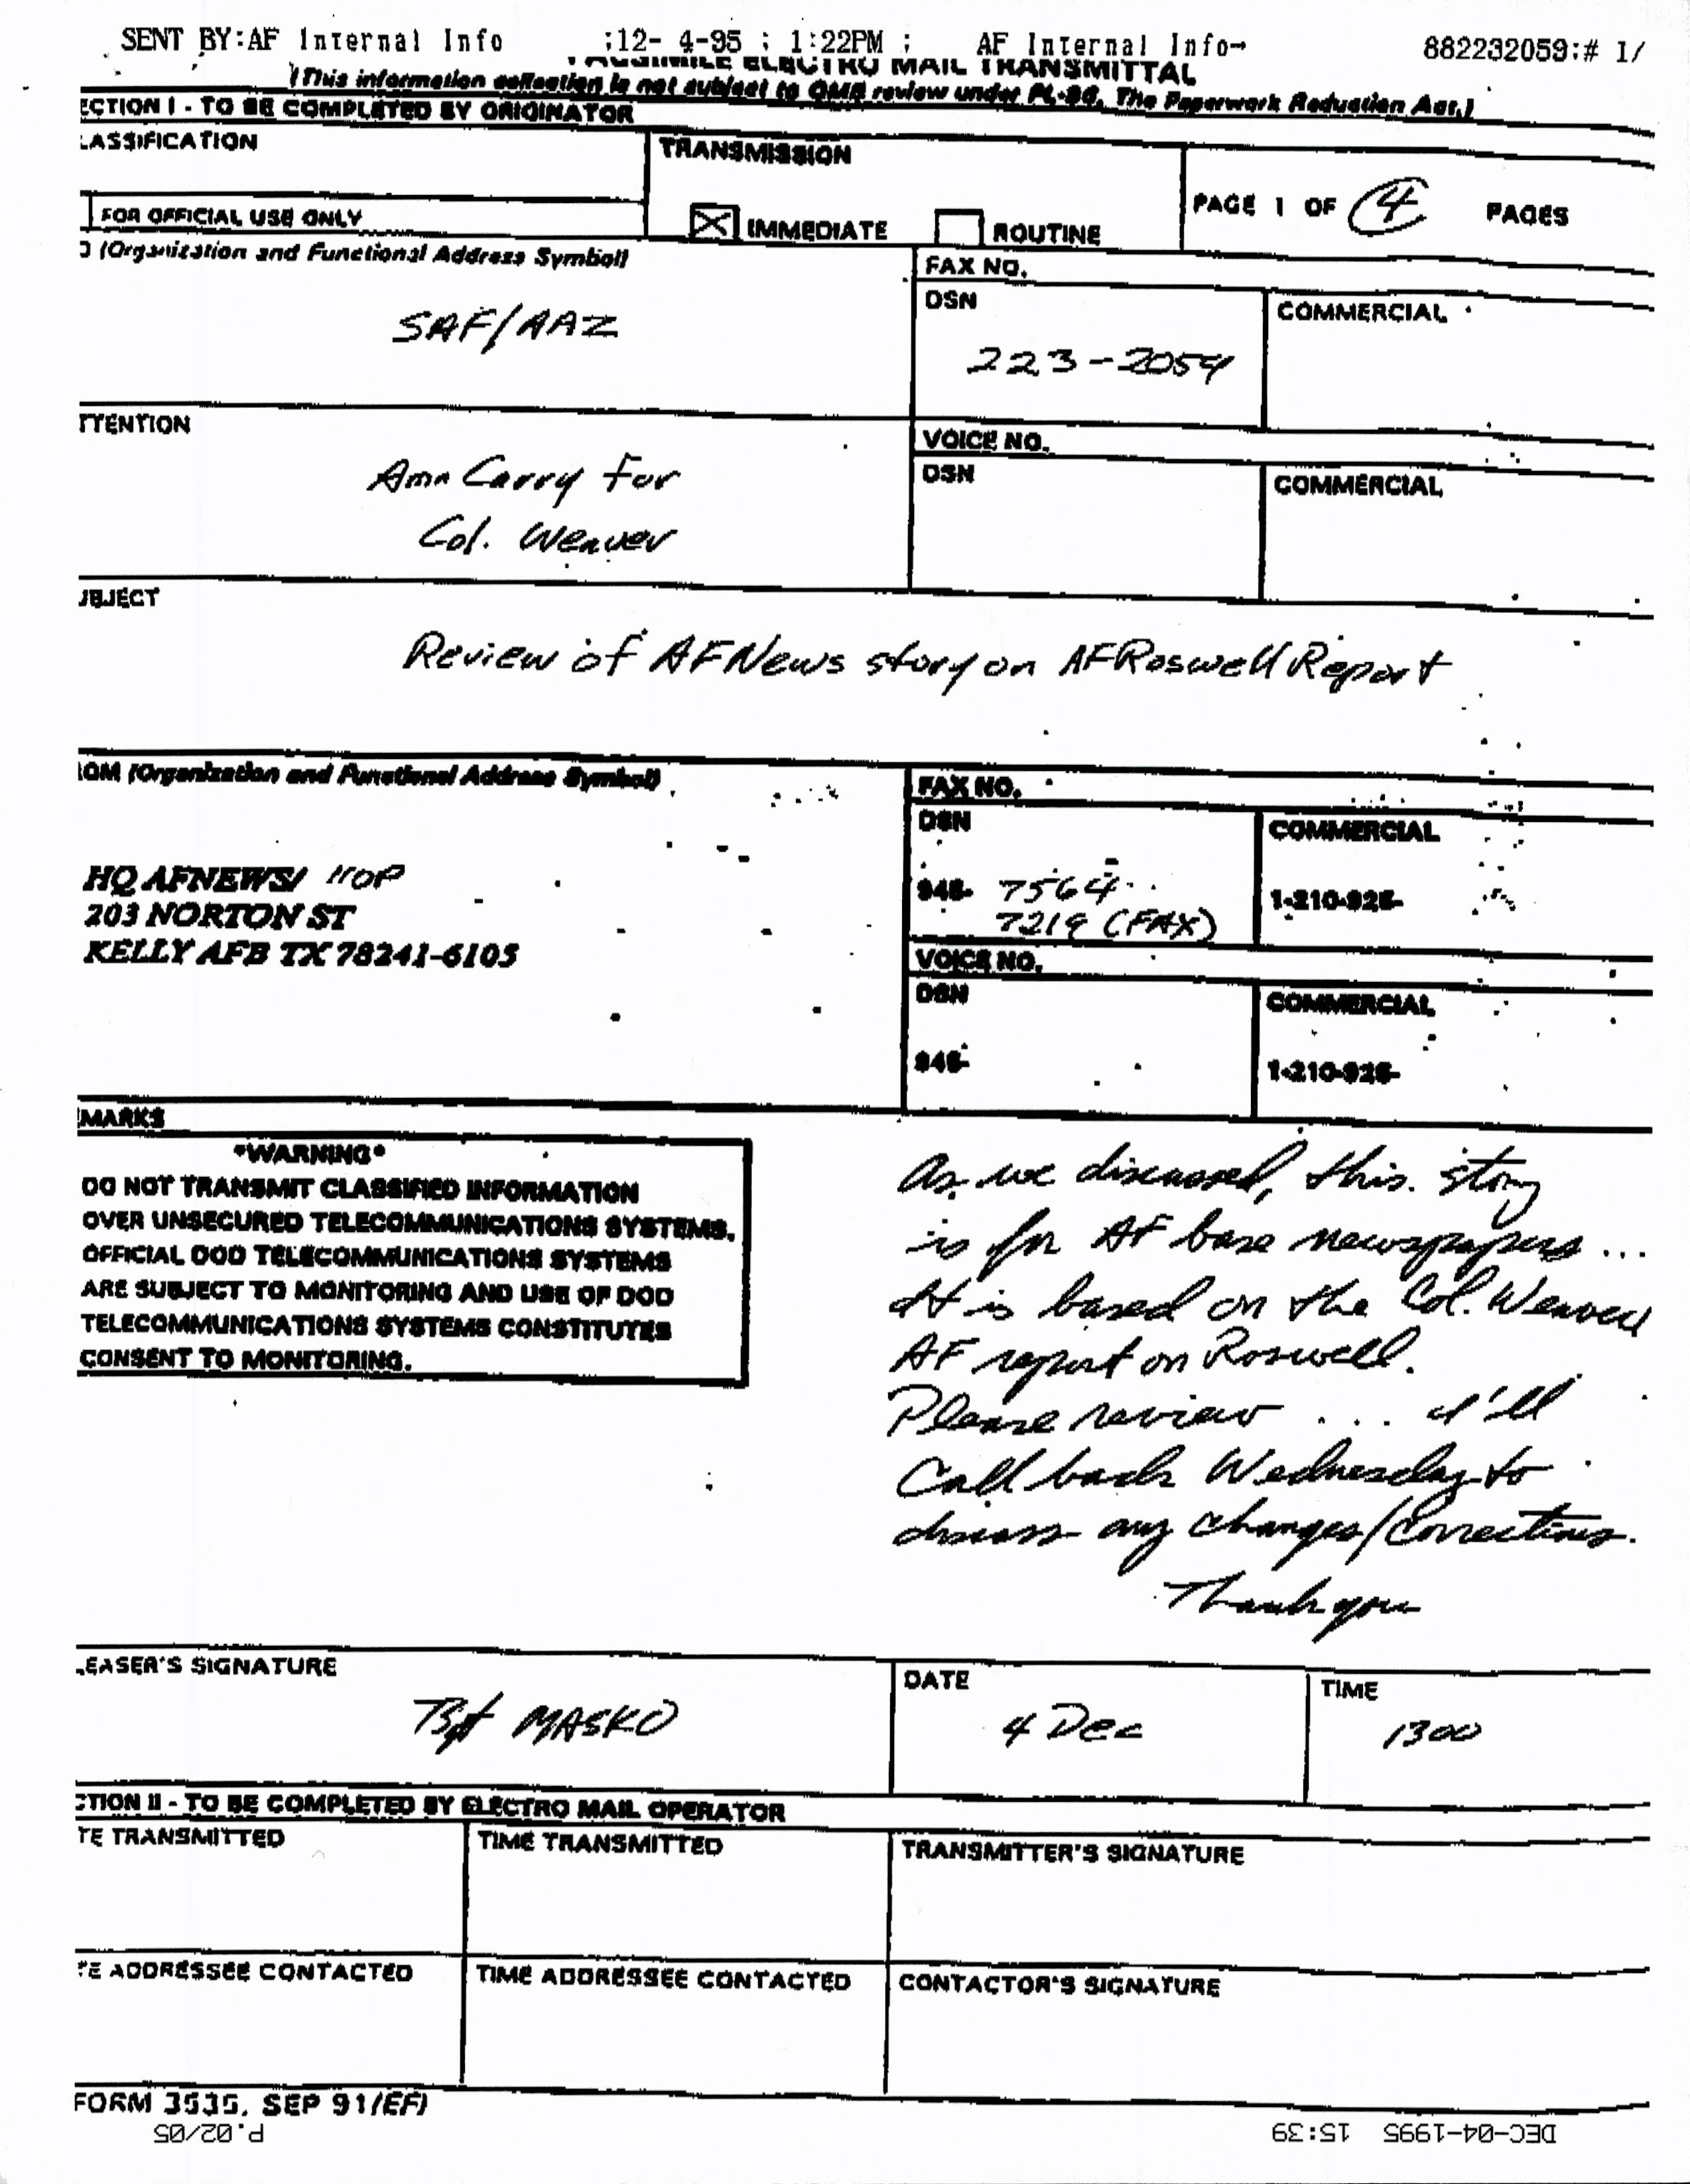 SENT BY:AF Internal Info ;12- 4-95 ; 1:22PM ; AF Internal Info→ 882232059:# 1/
FACSIMILE ELECTRO MAIL TRANSMITTAL
(This information collection is not subject to OMB review under PL-96, The Paperwork Reduction Act.)
ECTION I - TO BE COMPLETED BY ORIGINATOR
LASSIFICATION
TRANSMISSION
PAGE 1 OF 4 PAGES
FOR OFFICIAL USE ONLY
IMMEDIATE ROUTINE
O (Organization and Functional Address Symbol)
FAX NO.
DSN
COMMERCIAL
SAF/AAZ
223-2059
TTENTION
VOICE NO.
DSN
COMMERCIAL
Carry for
Col. Weaver
UBJECT
Review of AFNews story on AF Roswell Report
ROM (Organization and Functional Address Symbol)
FAX NO.
DSN
COMMERCIAL
HQ AFNEWS/ IIOP
203 NORTON ST
KELLY AFB TX 78241-6105
945- 7564
7219 (FAX)
1-210-925-
VOICE NO.
DSN
COMMERCIAL
945-
1-210-925-
EMARKS
*WARNING*
DO NOT TRANSMIT CLASSIFIED INFORMATION
OVER UNSECURED TELECOMMUNICATIONS SYSTEMS.
OFFICIAL DOD TELECOMMUNICATIONS SYSTEMS
ARE SUBJECT TO MONITORING AND USE OF DOD
TELECOMMUNICATIONS SYSTEMS CONSTITUTES
CONSENT TO MONITORING.
As we discussed, this story
is for AF base newspapers...
It is based on the Col. Weaver
AF report on Roswell.
Please review ... I'll
Call back Wednesday to
discuss any changes/corrections.
Thank you
LEASER'S SIGNATURE
DATE
TIME
TSgt MASKO
4 Dec
1300
CTION II - TO BE COMPLETED BY ELECTRO MAIL OPERATOR
TE TRANSMITTED
TIME TRANSMITTED
TRANSMITTER'S SIGNATURE
TE ADDRESSEE CONTACTED
TIME ADDRESSEE CONTACTED
CONTACTOR'S SIGNATURE
FORM 3535, SEP 91(EF)
P.02/05
DEC-04-1995 15:39